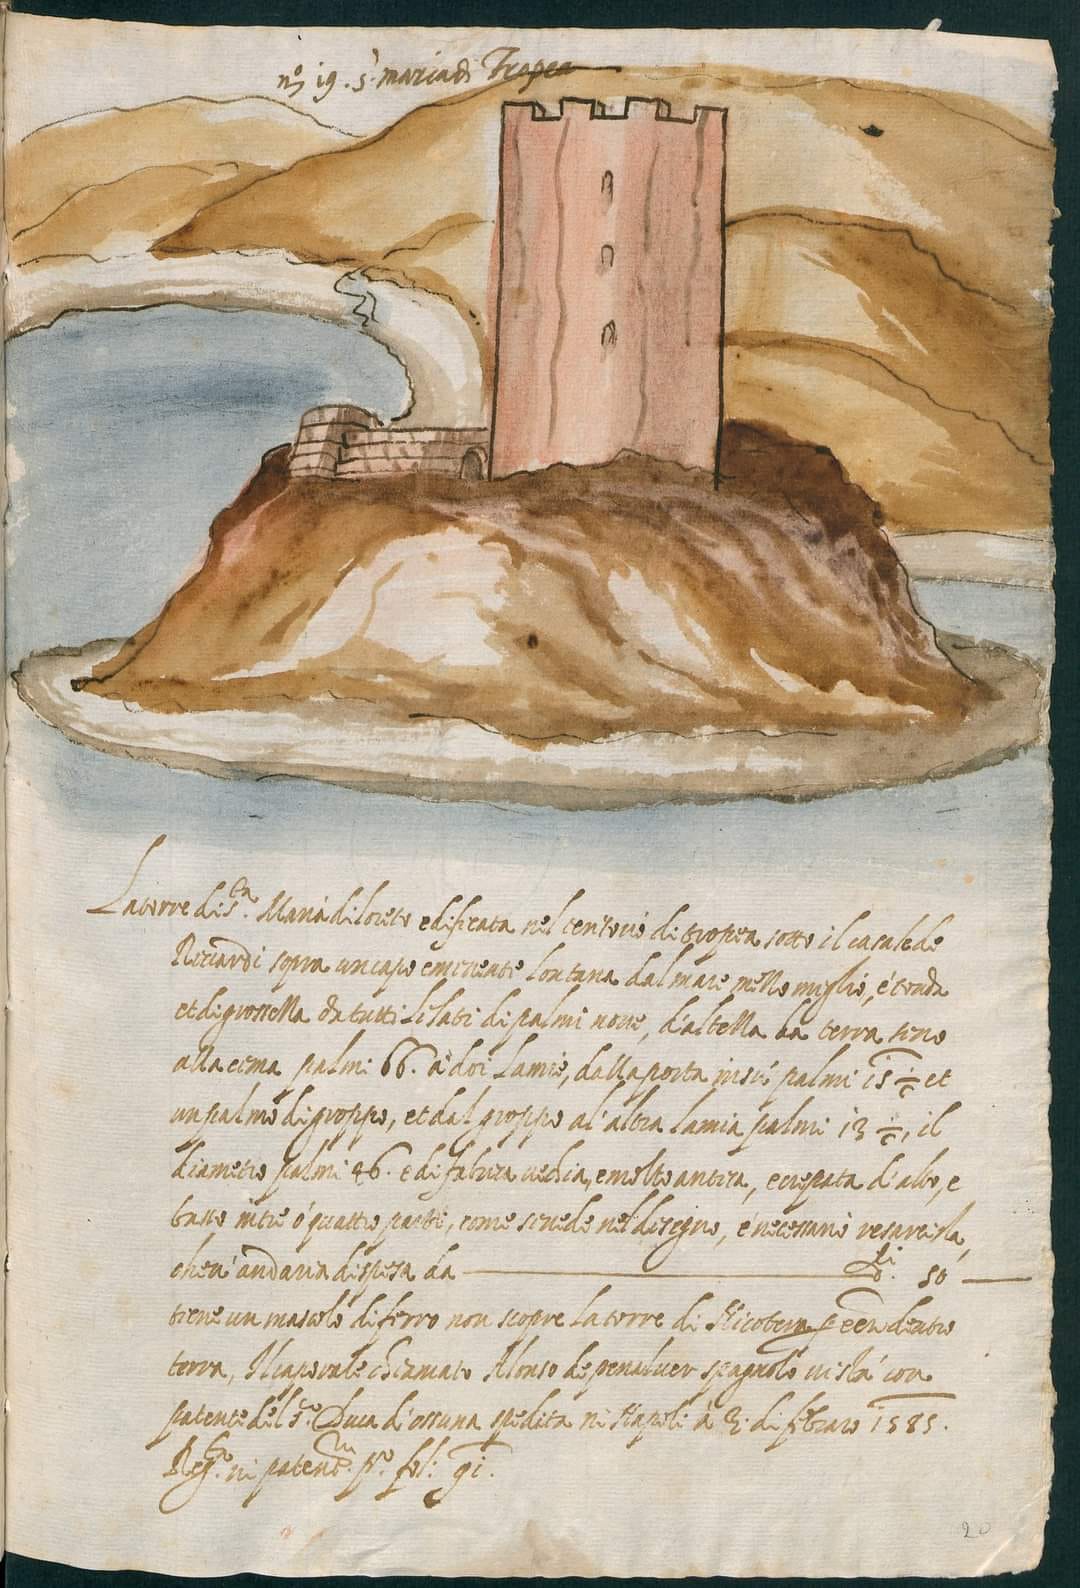 nº 19. S. maria di Tropea
La torre di s.ta Maria di loreto edificata nel tenitorio di tropea sotto il casale de
Ricciardi sopra un capo eminente lontana dal mare mezzo miglio, é tonda
et di grossezza da tutti li lati di palmi nove, d'altezza da terra sino
alla cima palmi 66. à doi lamie, dalla porta in sù palmi 15 ½ et
un palmo di groppo, et dal groppo al'altra lamia palmi 13 ½, il
diametro palmi 46. é di fabrica vechia, e molto antica, e crepata d'alto, e
basso in tre ó quattro parti, come si vede nel disegno, é necessario resarcirla,
che n'andaria di spesa da d.ti 50
tiene un mascolo di ferro non scopre la torre di Nicotera per esser dentro
terra, Il caporale chiamato Alonso de penaluer spagnolo vi stà con
patente del s.re Duca d'ossuna spedita in Napoli à 2. di febraro 1585.
Reg.ta in patent. p.º fol: 91.
20